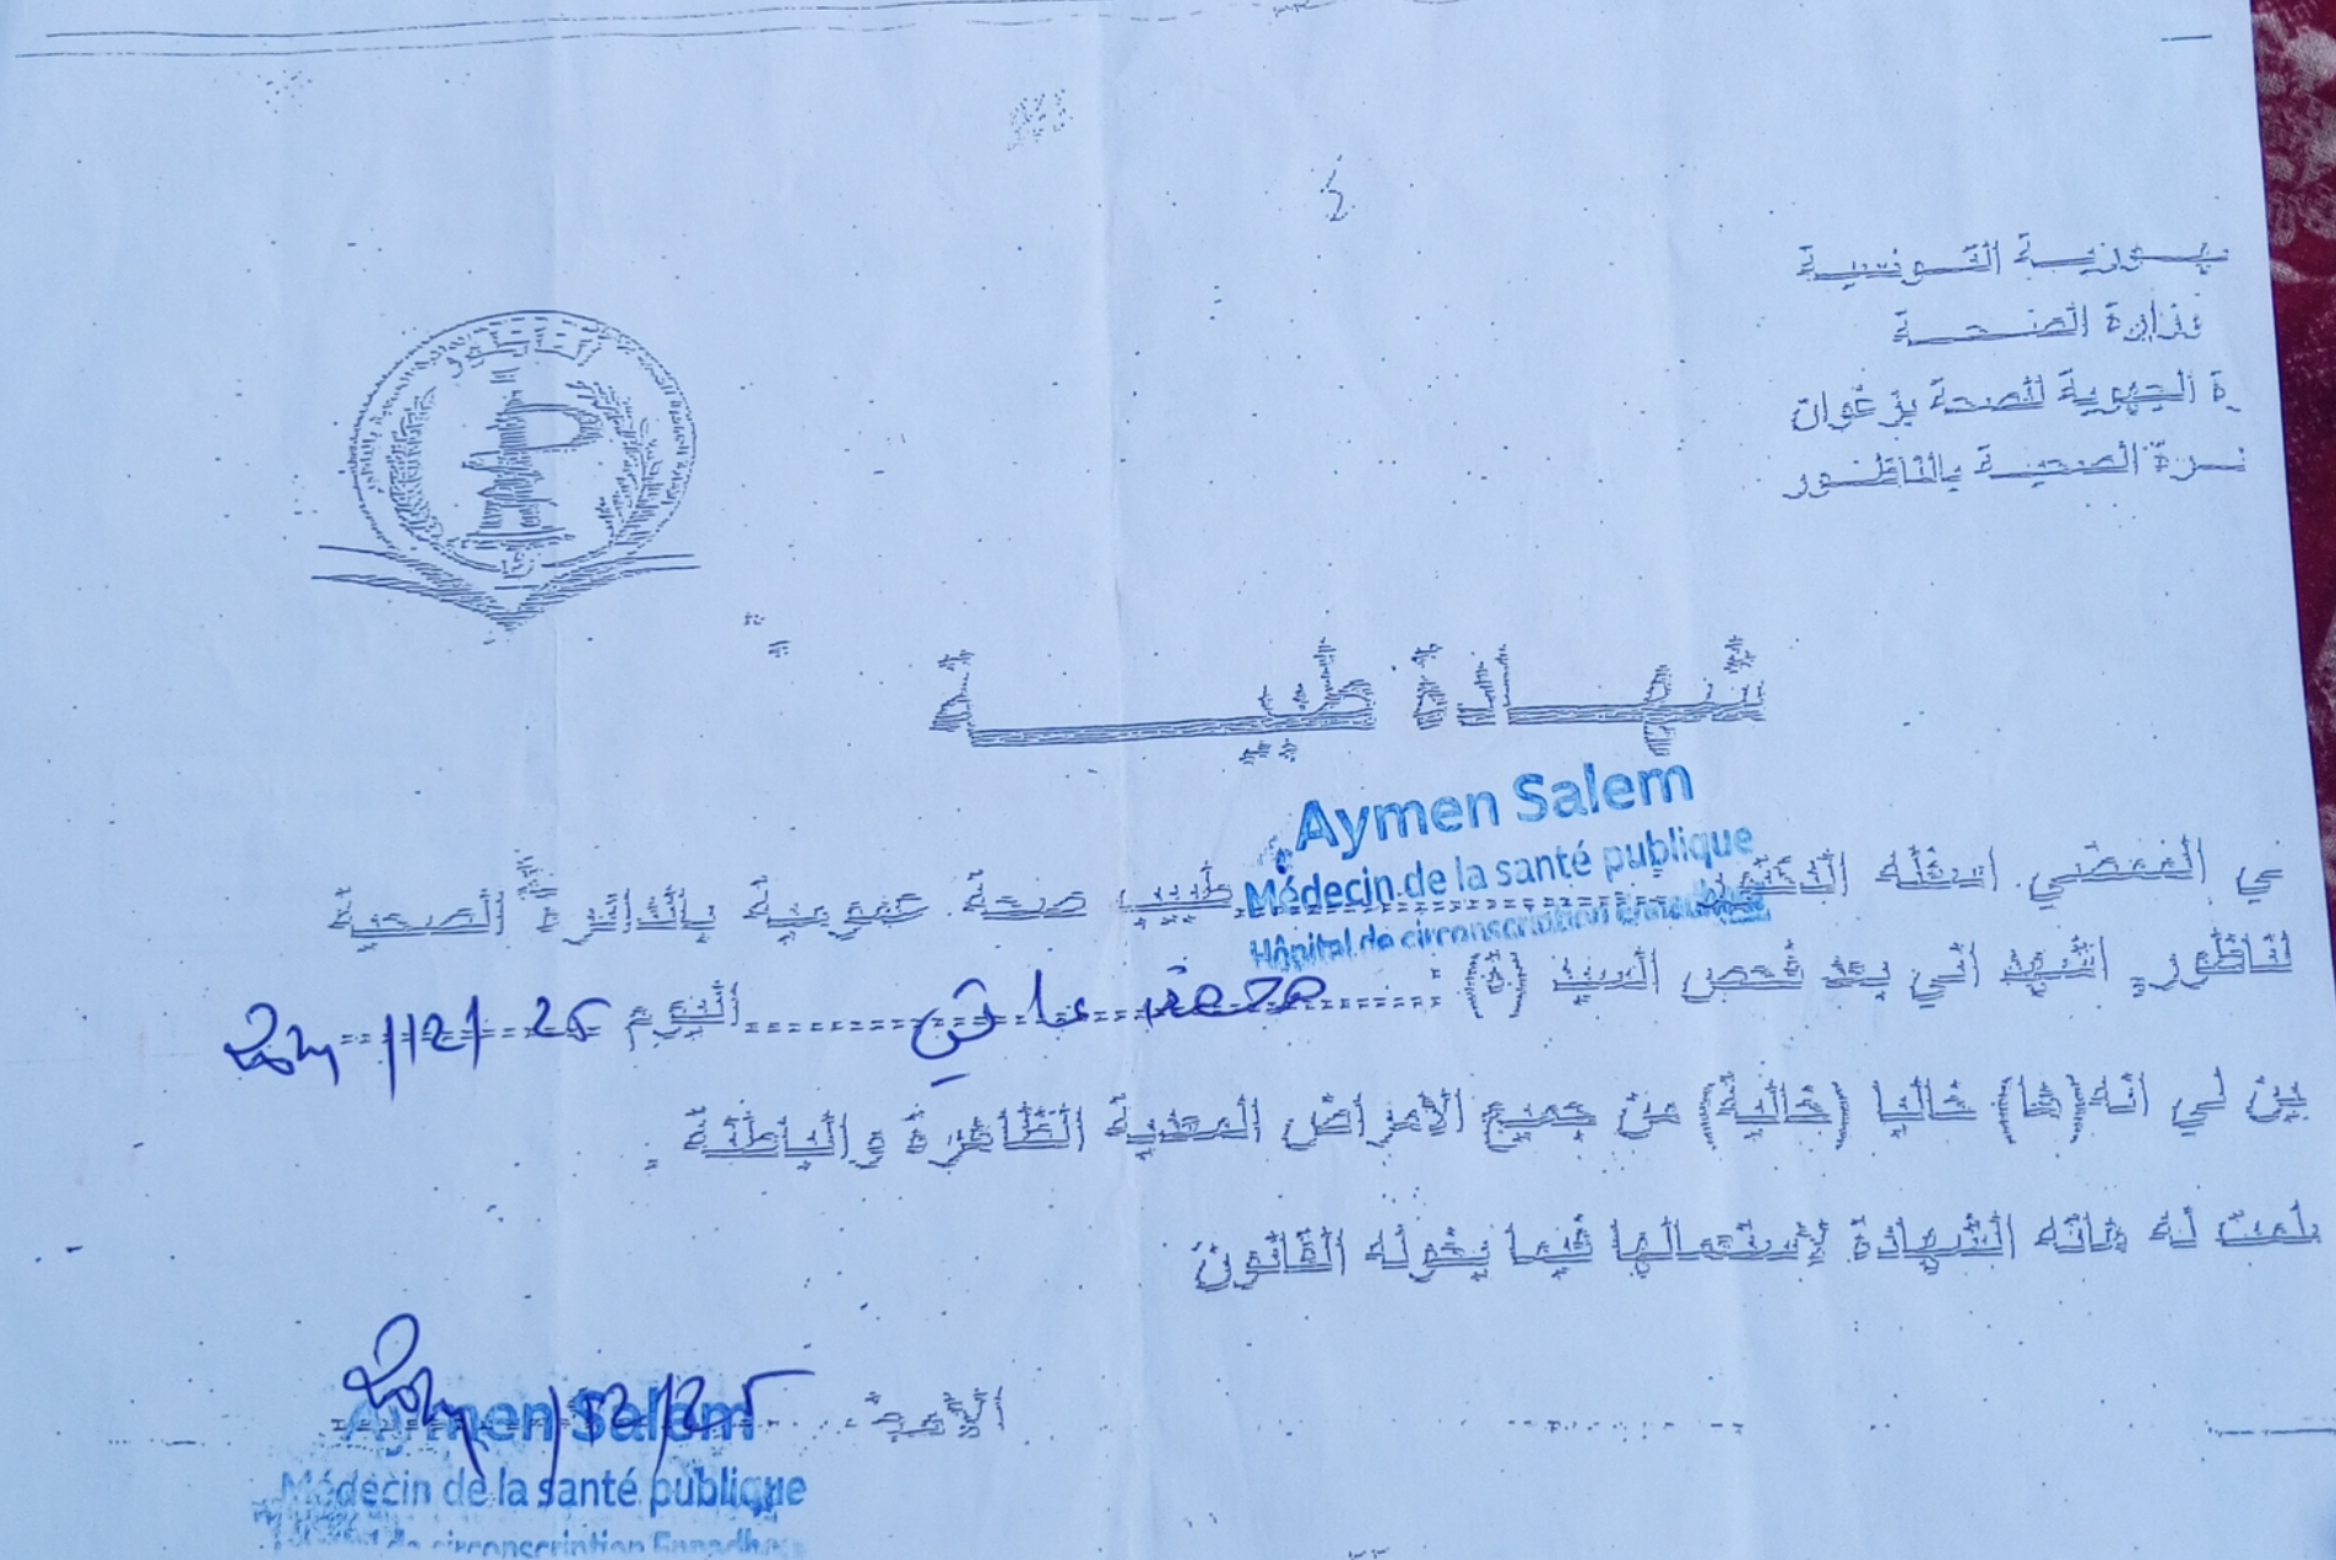 ـهـوريـة التـونسيـة
وزارة الصـحـة
ـرة الجهوية للصحة بزغوان
ـرة الصحيـة بالناظـور
الناظور
شهـادة طبيـة
Aymen Salem
Médecin de la santé publique
Hôpital de circonscription Ennadhour
ني الممضي اسفله الدكتور طبيب صحة عمومية بالدائرة الصحية
لناظور اشهد اني بعد فحص السيد (ة) : محمد علي اليوم 25 /12/
بين لي انه(ها) خاليا (خالية) من جميع الأمراض المعدية الظاهرة والباطنة .
سلمت له هاته الشهادة لإستعمالها فيما يخوله القانون
/12/25
Aymen Salem
Médecin de la santé publique
de circonscription Ennadhour